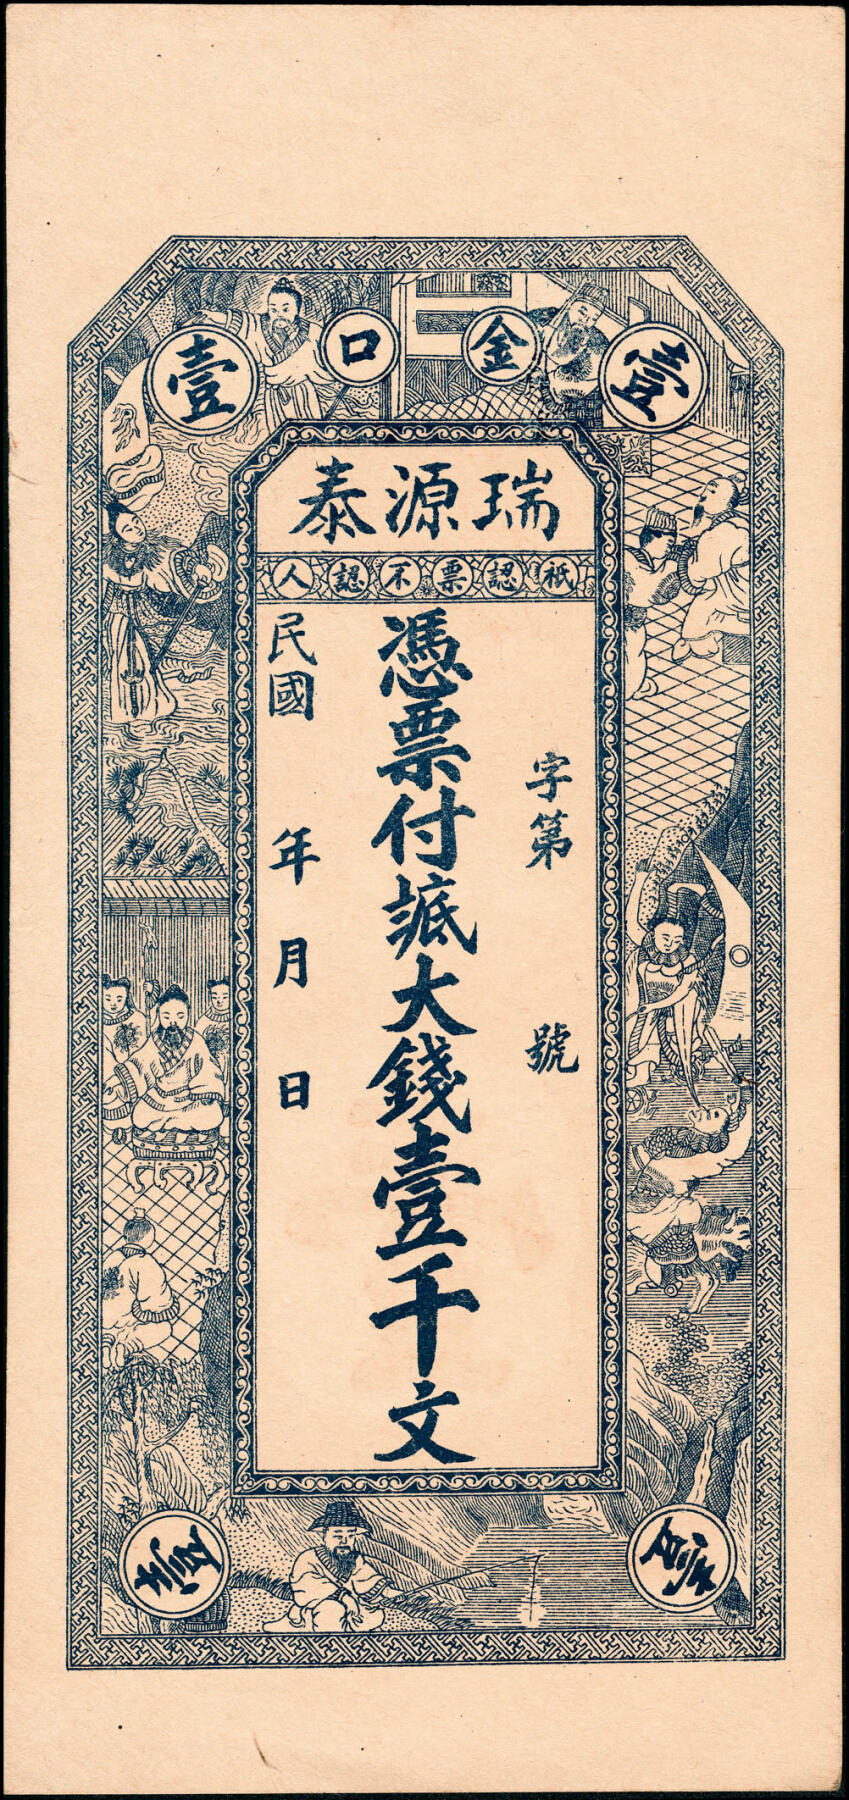 壹金口壹
瑞源泰
祇認票不認人
字第 號
憑票付大錢壹千文
民國 年 月 日
壹 壹